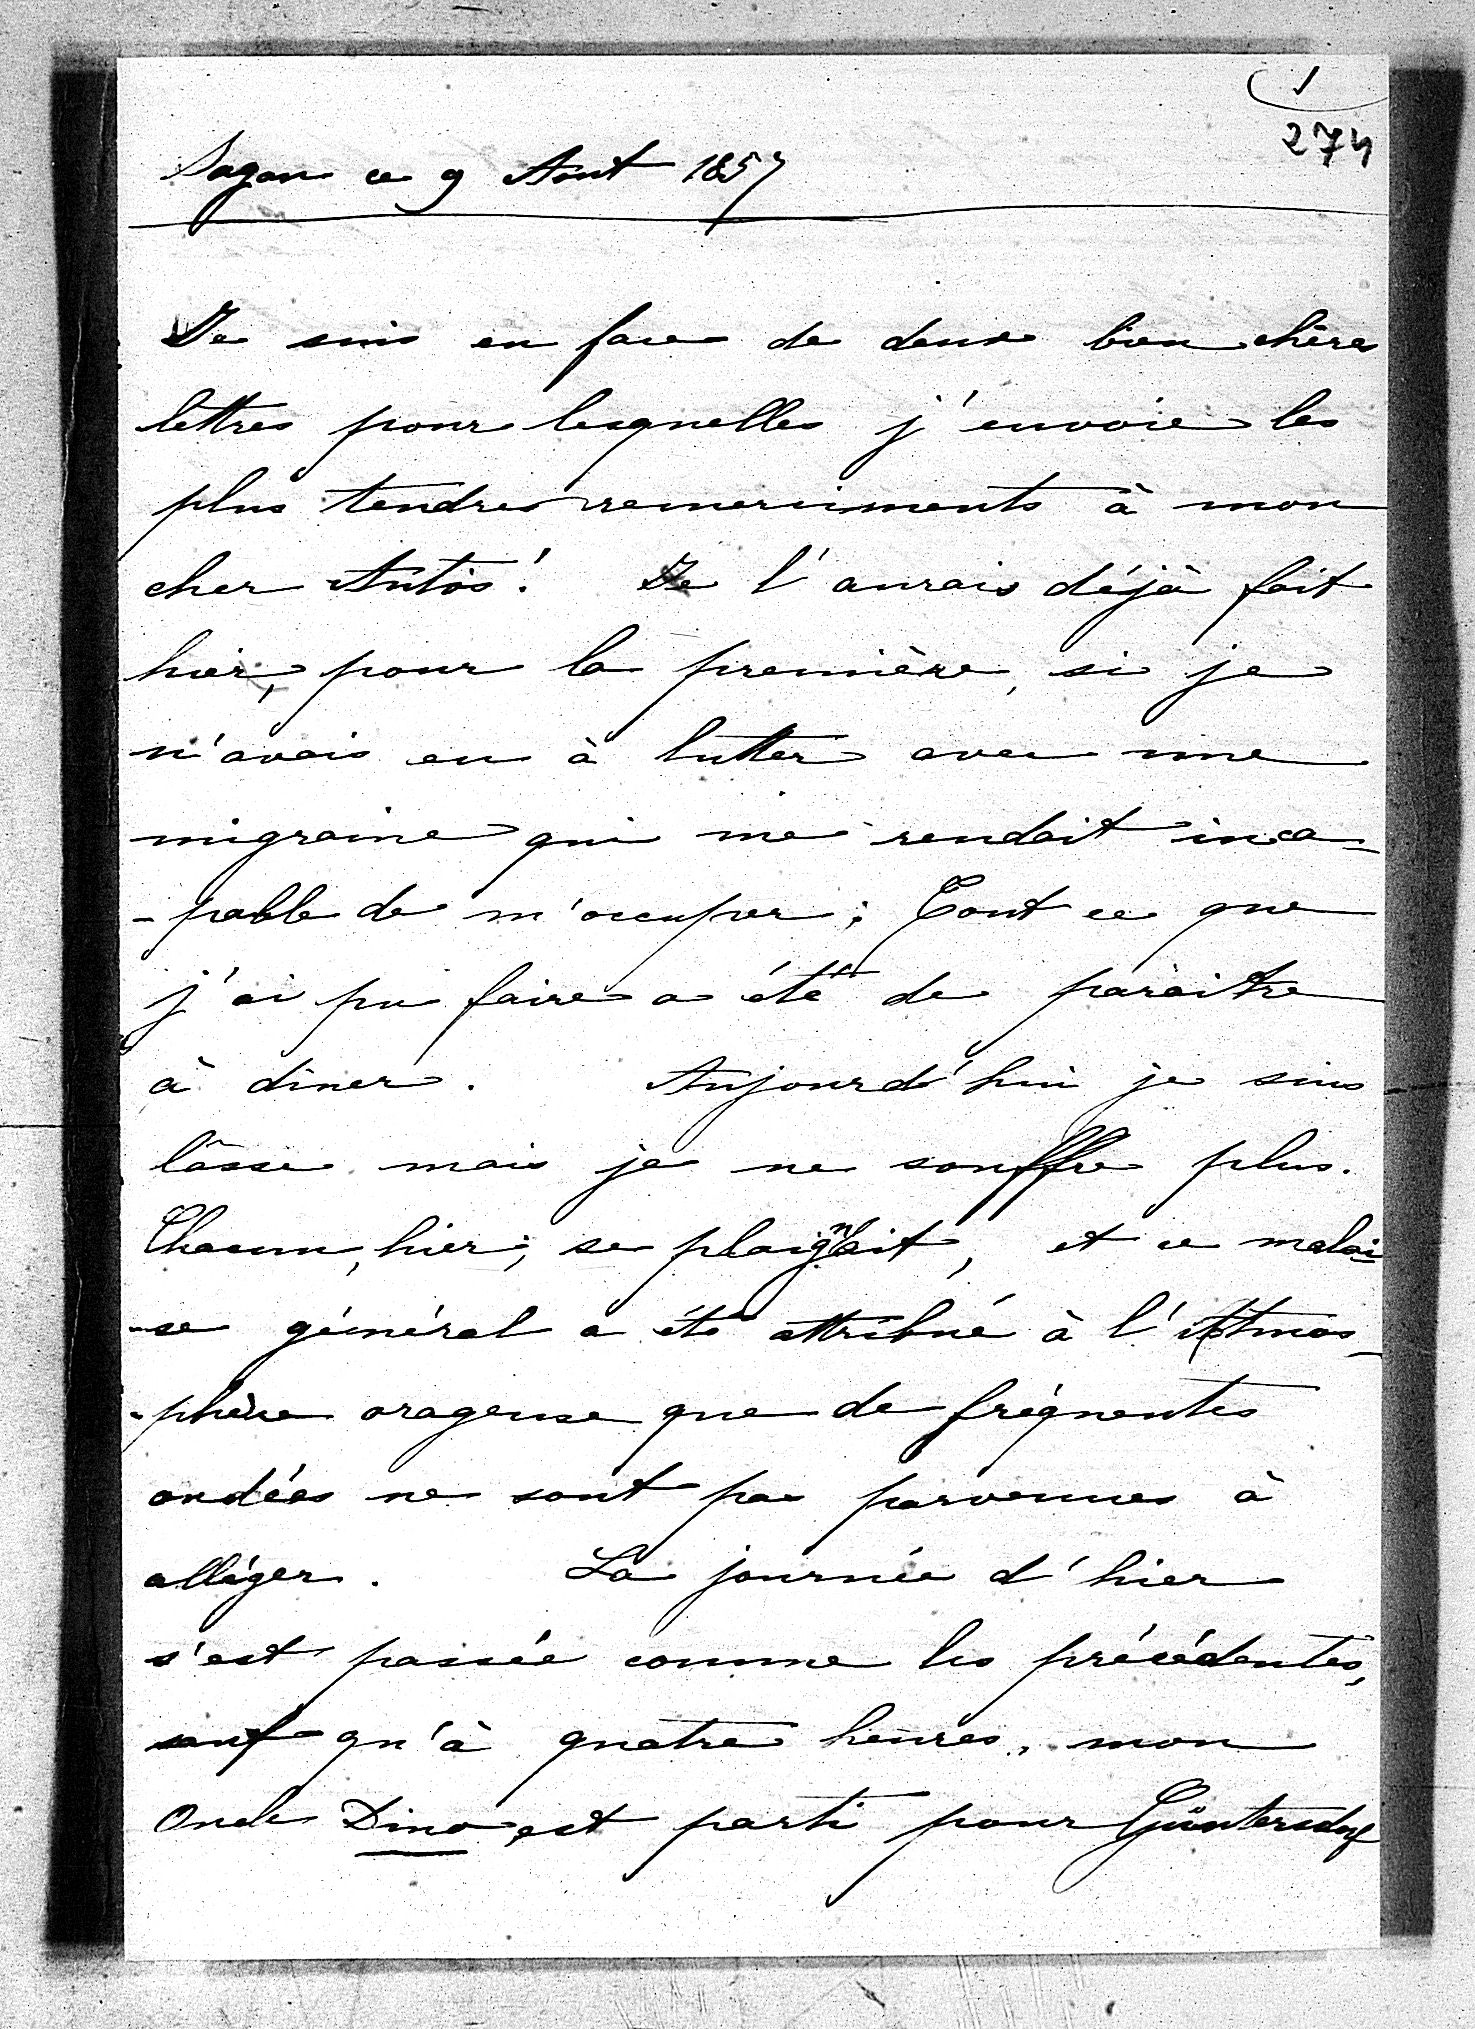 1
274
Sagan ce 9 Aout 1857
Je suis en face de deux bien chères
lettres pour lesquelles j'envoie les
plus tendres remerciments à mon
cher Antos! Je l'aurais déjà fait
hier, pour la première, si je
n'avais eu à lutter avec une
migraine qui me rendait inca-
-pable de m'occuper; Tout ce que
j'ai pu faire a été de paraitre
à diner. Aujourd'hui je suis
lâsse mais je ne souffre plus.
Chacun, hier, se plaignait, et ce malai
-se général a été attribué à l'Atmos-
-phère orageuse que de fréquentes
ondées ne sont pas parvenues à
alléger. La journée d'hier
s'est passée comme les précédentes,
sauf qu'à quatre heures, mon
Oncle Dino est parti pour Güntersdorf